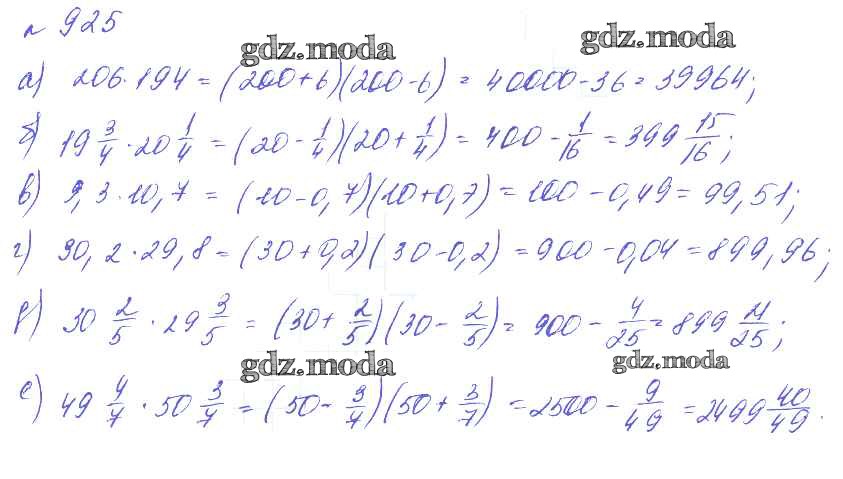 № 925
gdz.moda
gdz.moda
а) 206·194 = (200+6)(200-6) = 40000-36 = 39964;
б) 19 3/4 · 20 1/4 = (20 - 1/4)(20 + 1/4) = 400 - 1/16 = 399 15/16;
в) 9,3·10,7 = (10-0,7)(10+0,7) = 100-0,49 = 99,51;
г) 30,2·29,8 = (30+0,2)(30-0,2) = 900-0,04 = 899,96;
д) 30 2/5 · 29 3/5 = (30 + 2/5)(30 - 2/5) = 900 - 4/25 = 899 21/25;
gdz.moda
gdz.moda
е) 49 4/7 · 50 3/7 = (50 - 3/7)(50 + 3/7) = 2500 - 9/49 = 2499 40/49.